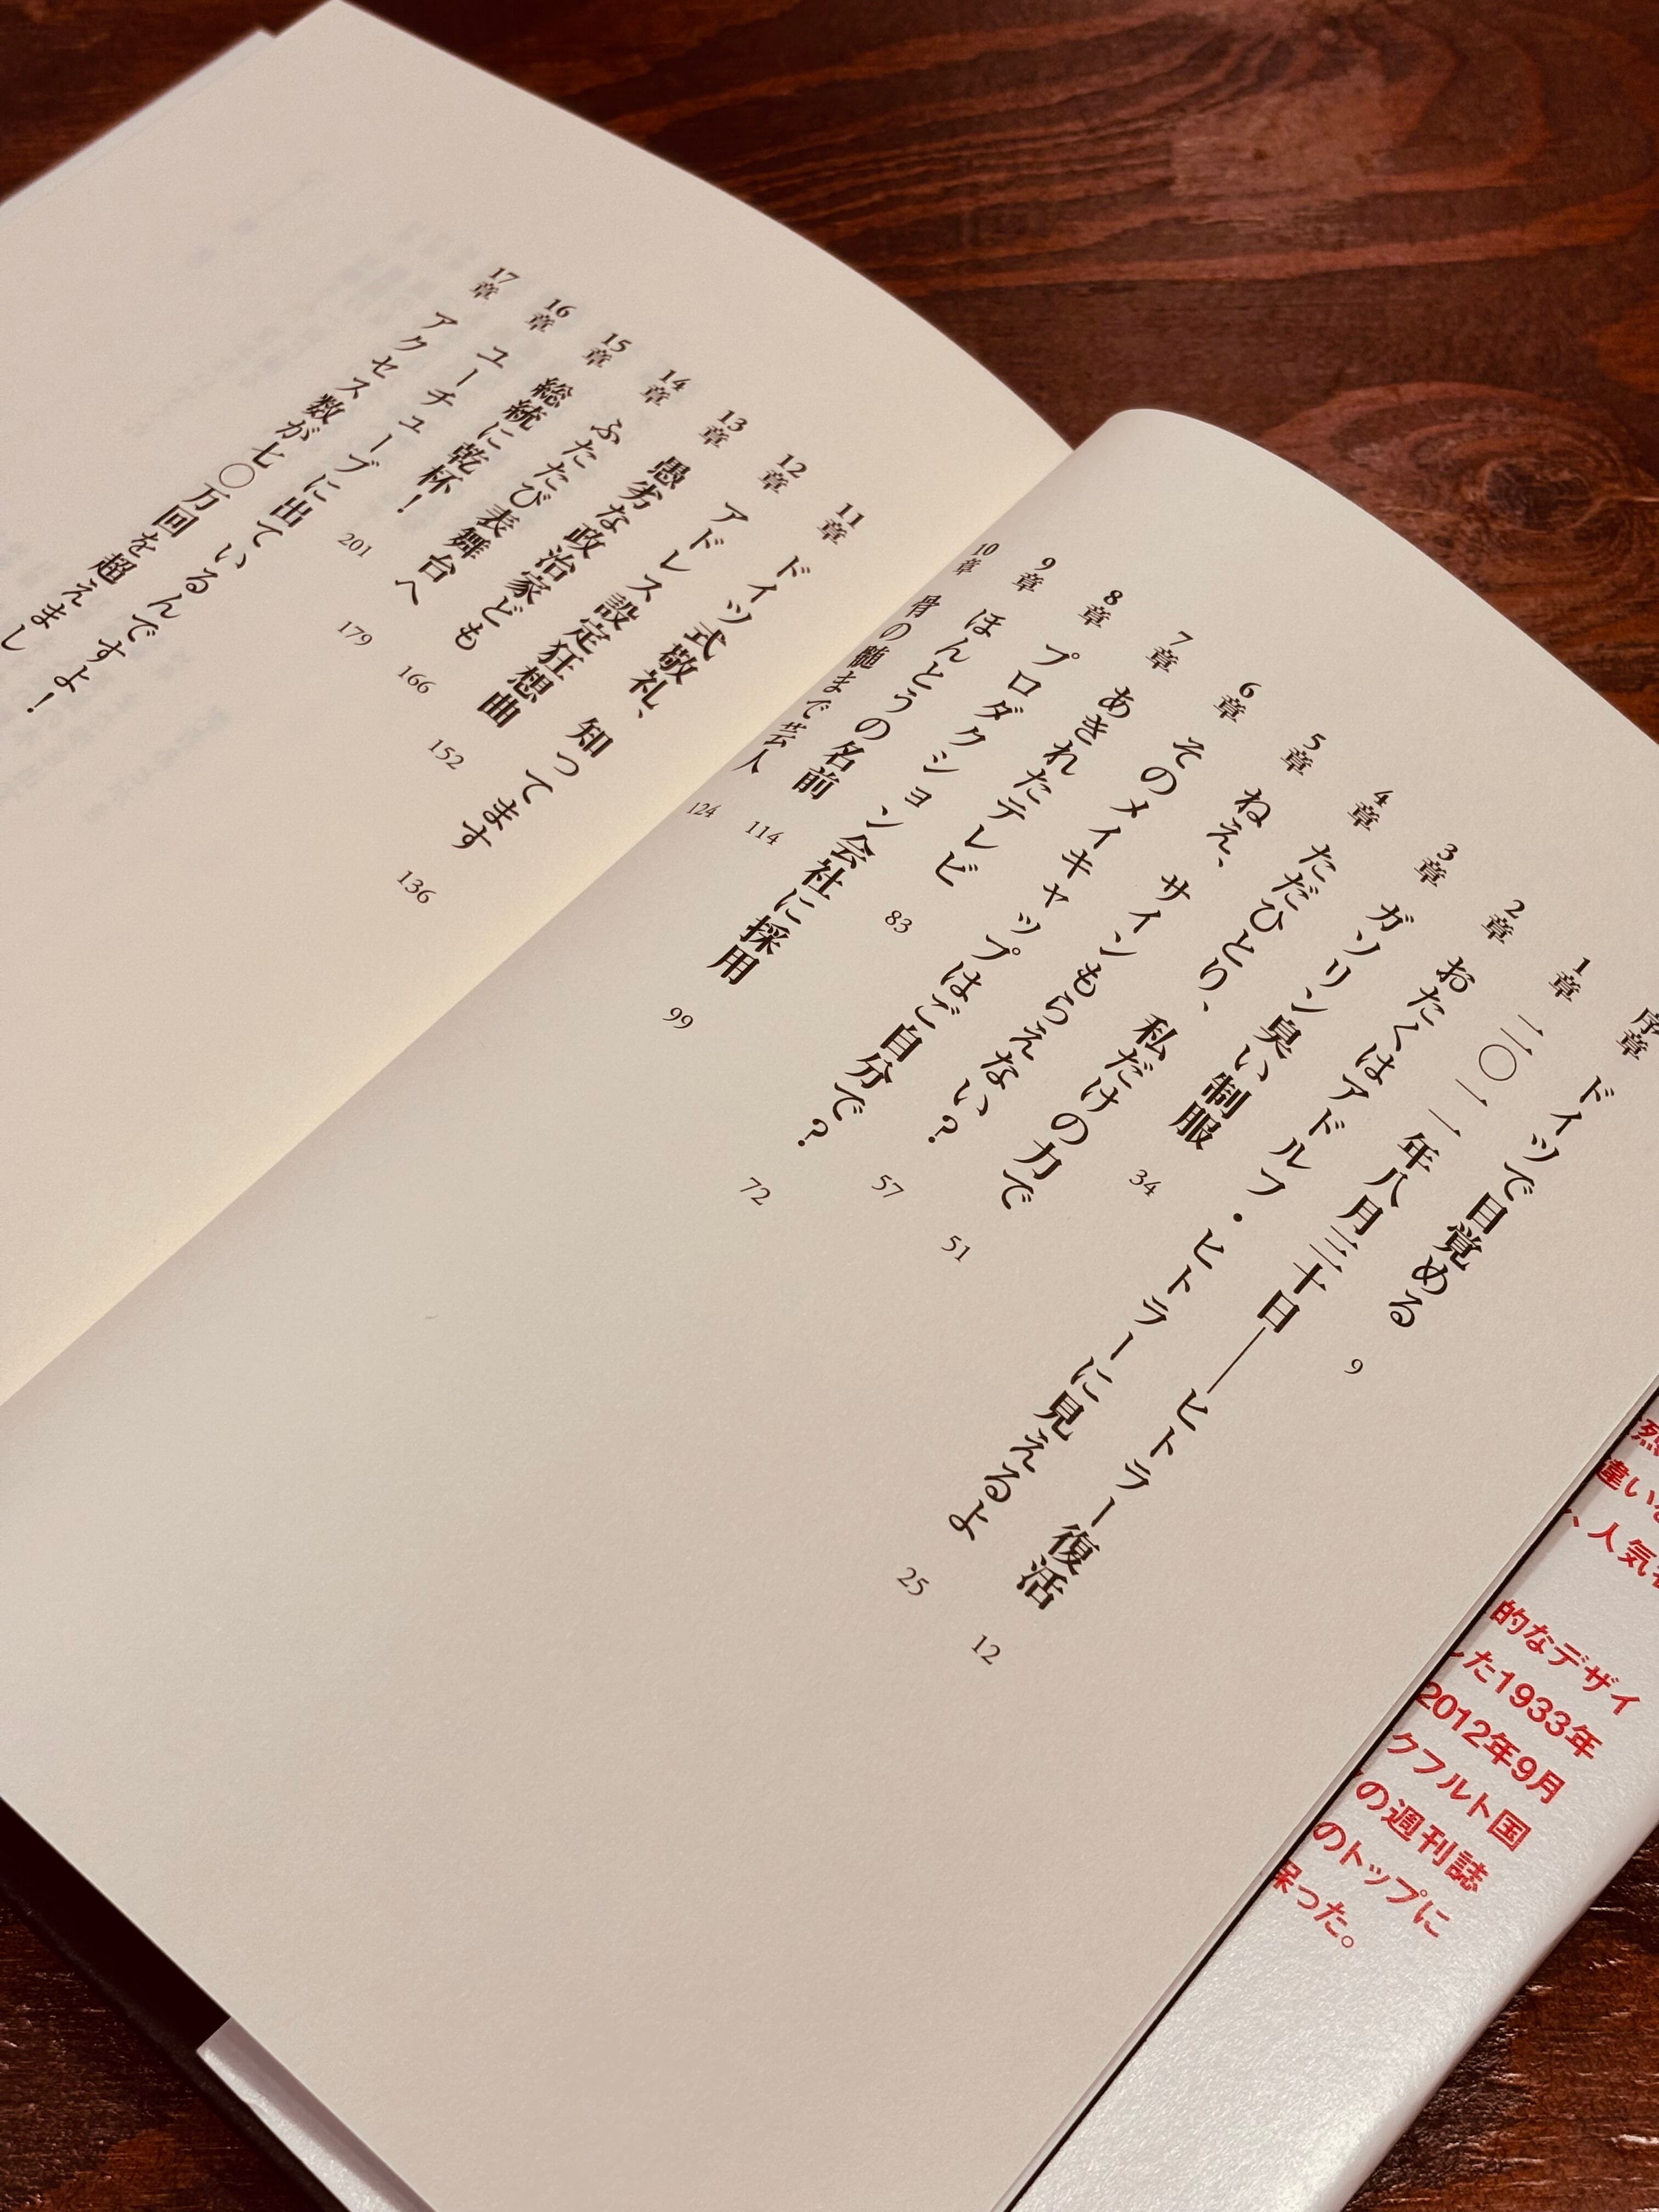 序章 ドイツで目覚める 9
1章 二〇一一年八月三十日――ヒトラー復活 12
2章 おたくはアドルフ・ヒトラーに見えるよ 25
3章 ガソリン臭い制服 34
4章 ただひとり、私だけの力で 51
5章 ねえ、サインもらえない? 57
6章 そのメイキャップはご自分で? 72
7章 あきれたテレビ 83
8章 プロダクション会社に採用 99
9章 ほんとうの名前 114
10章 骨の髄まで芸人 124
11章 ドイツ式敬礼、知ってます 136
12章 アドレス設定狂想曲 152
13章 愚劣な政治家ども 166
14章 ふたたび表舞台へ 179
15章 総統に乾杯! 201
16章 ユーチューブに出ているんですよ!
17章 アクセス数が七〇万回を超えまし
違い
、人気
的なデザイ
た1933年
2012年9月
クフルト国
の週刊誌
のトップに
保った。